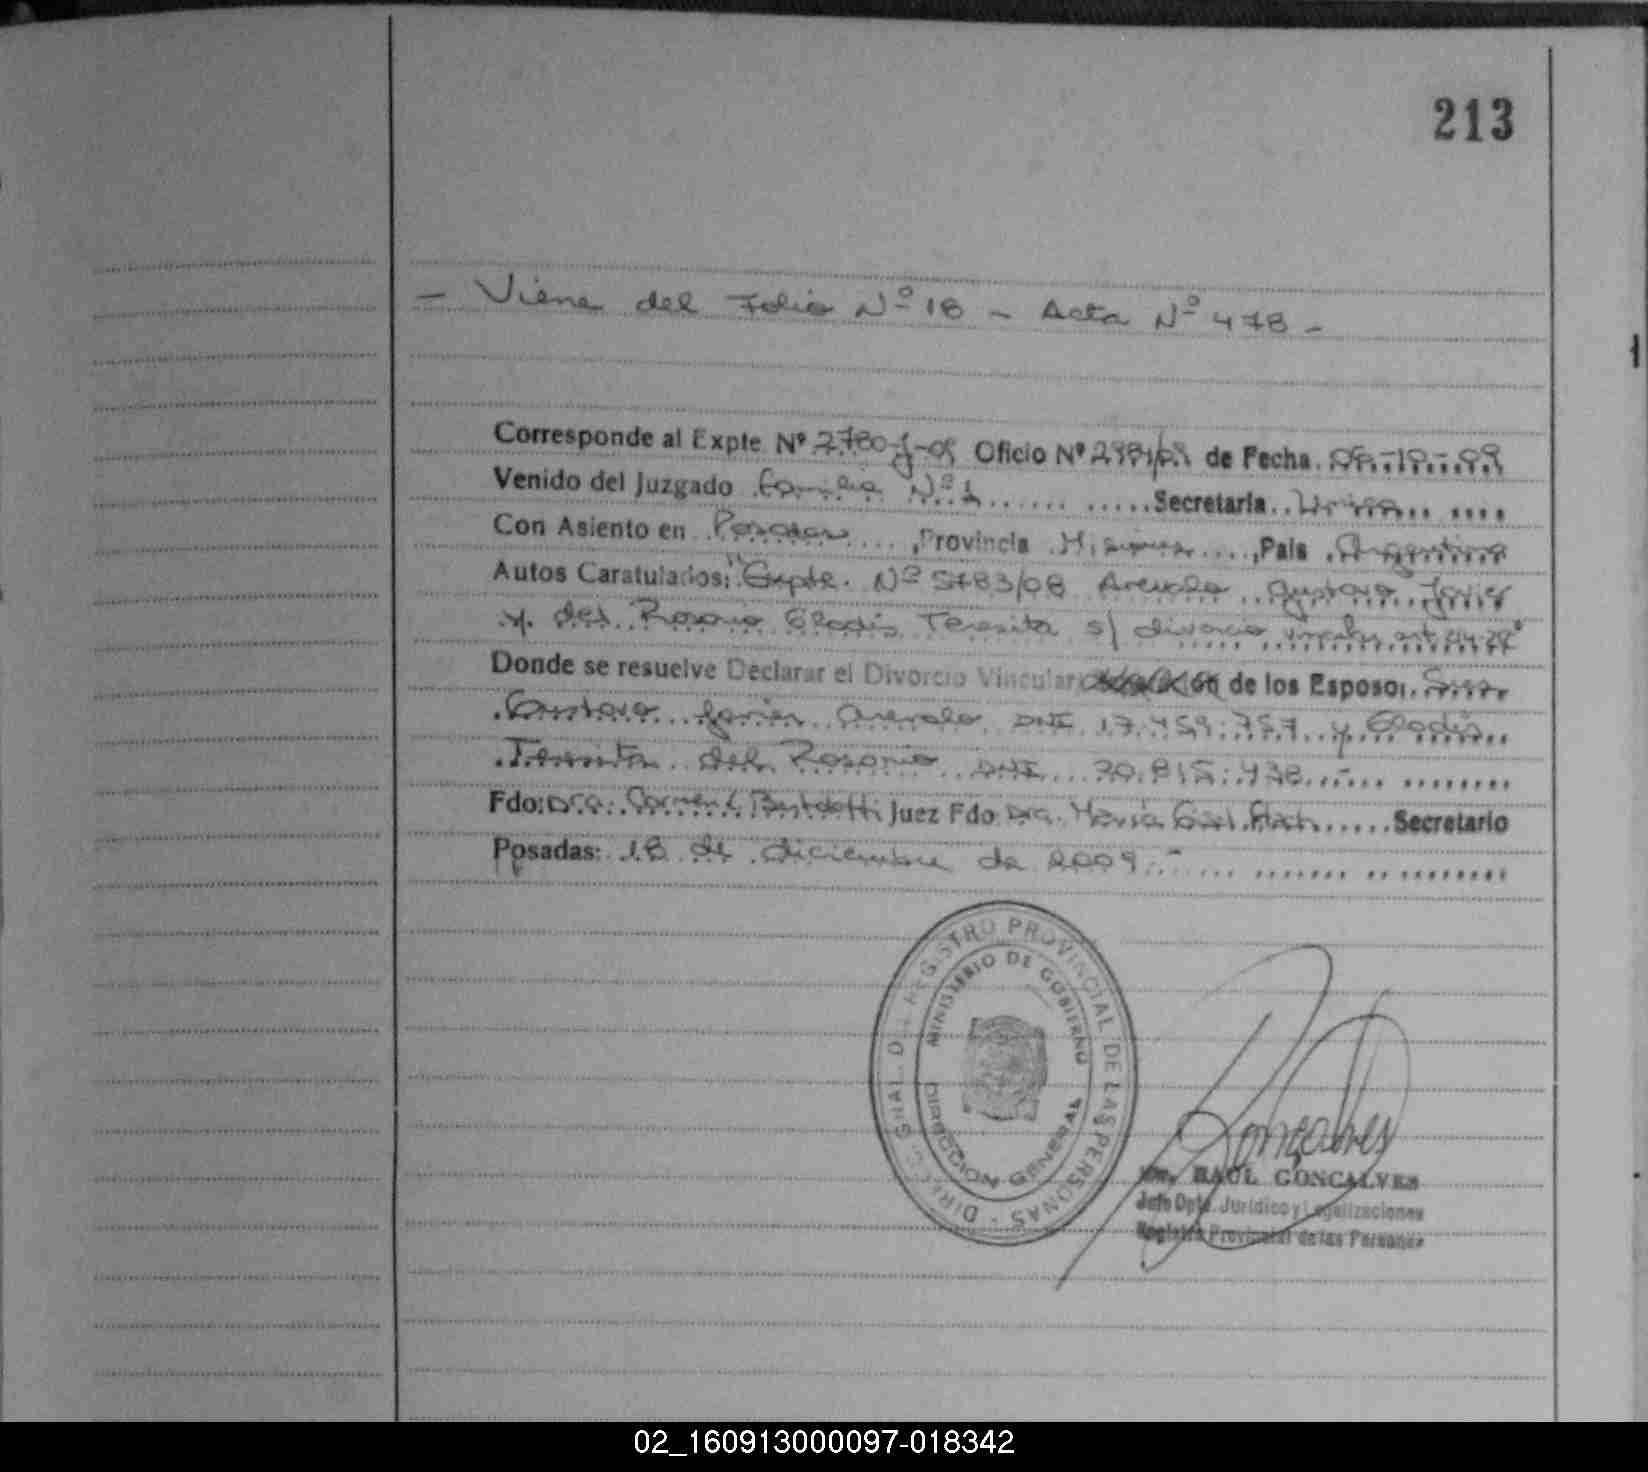 213
- Viene del Folio Nº 18 - Acta Nº 478 -
Corresponde al Expte Nº 2780-J-09 Oficio Nº de Fecha 06-10-09
Venido del Juzgado Familia Nº 1 Secretaria Unica
Con Asiento en Posadas, Provincia Misiones, Pais Argentina
Autos Caratulados: "Expte. Nº 5783/08 Arevalo Gustavo Javier
y del Rosario Gladis Teresita s/ divorcio vincular art.
Donde se resuelve Declarar el Divorcio Vincular de los Esposos
Gustavo Javier Arevalo DNI 17.459.757 y Gladis
Teresita del Rosario DNI 20.815.438
Fdo: Dra. Carmen Juez Fdo Dra. María Secretario
Posadas: 18 de diciembre de 2009.-
DIRECC. GRAL. DEL REGISTRO PROVINCIAL DE LAS PERSONAS
MINISTERIO DE GOBIERNO
DIRECCION GENERAL
Goncalves
RAUL GONCALVES
Jefe Dpto. Juridico y Legalizaciones
Registro Provincial de las Personas
02_160913000097-018342